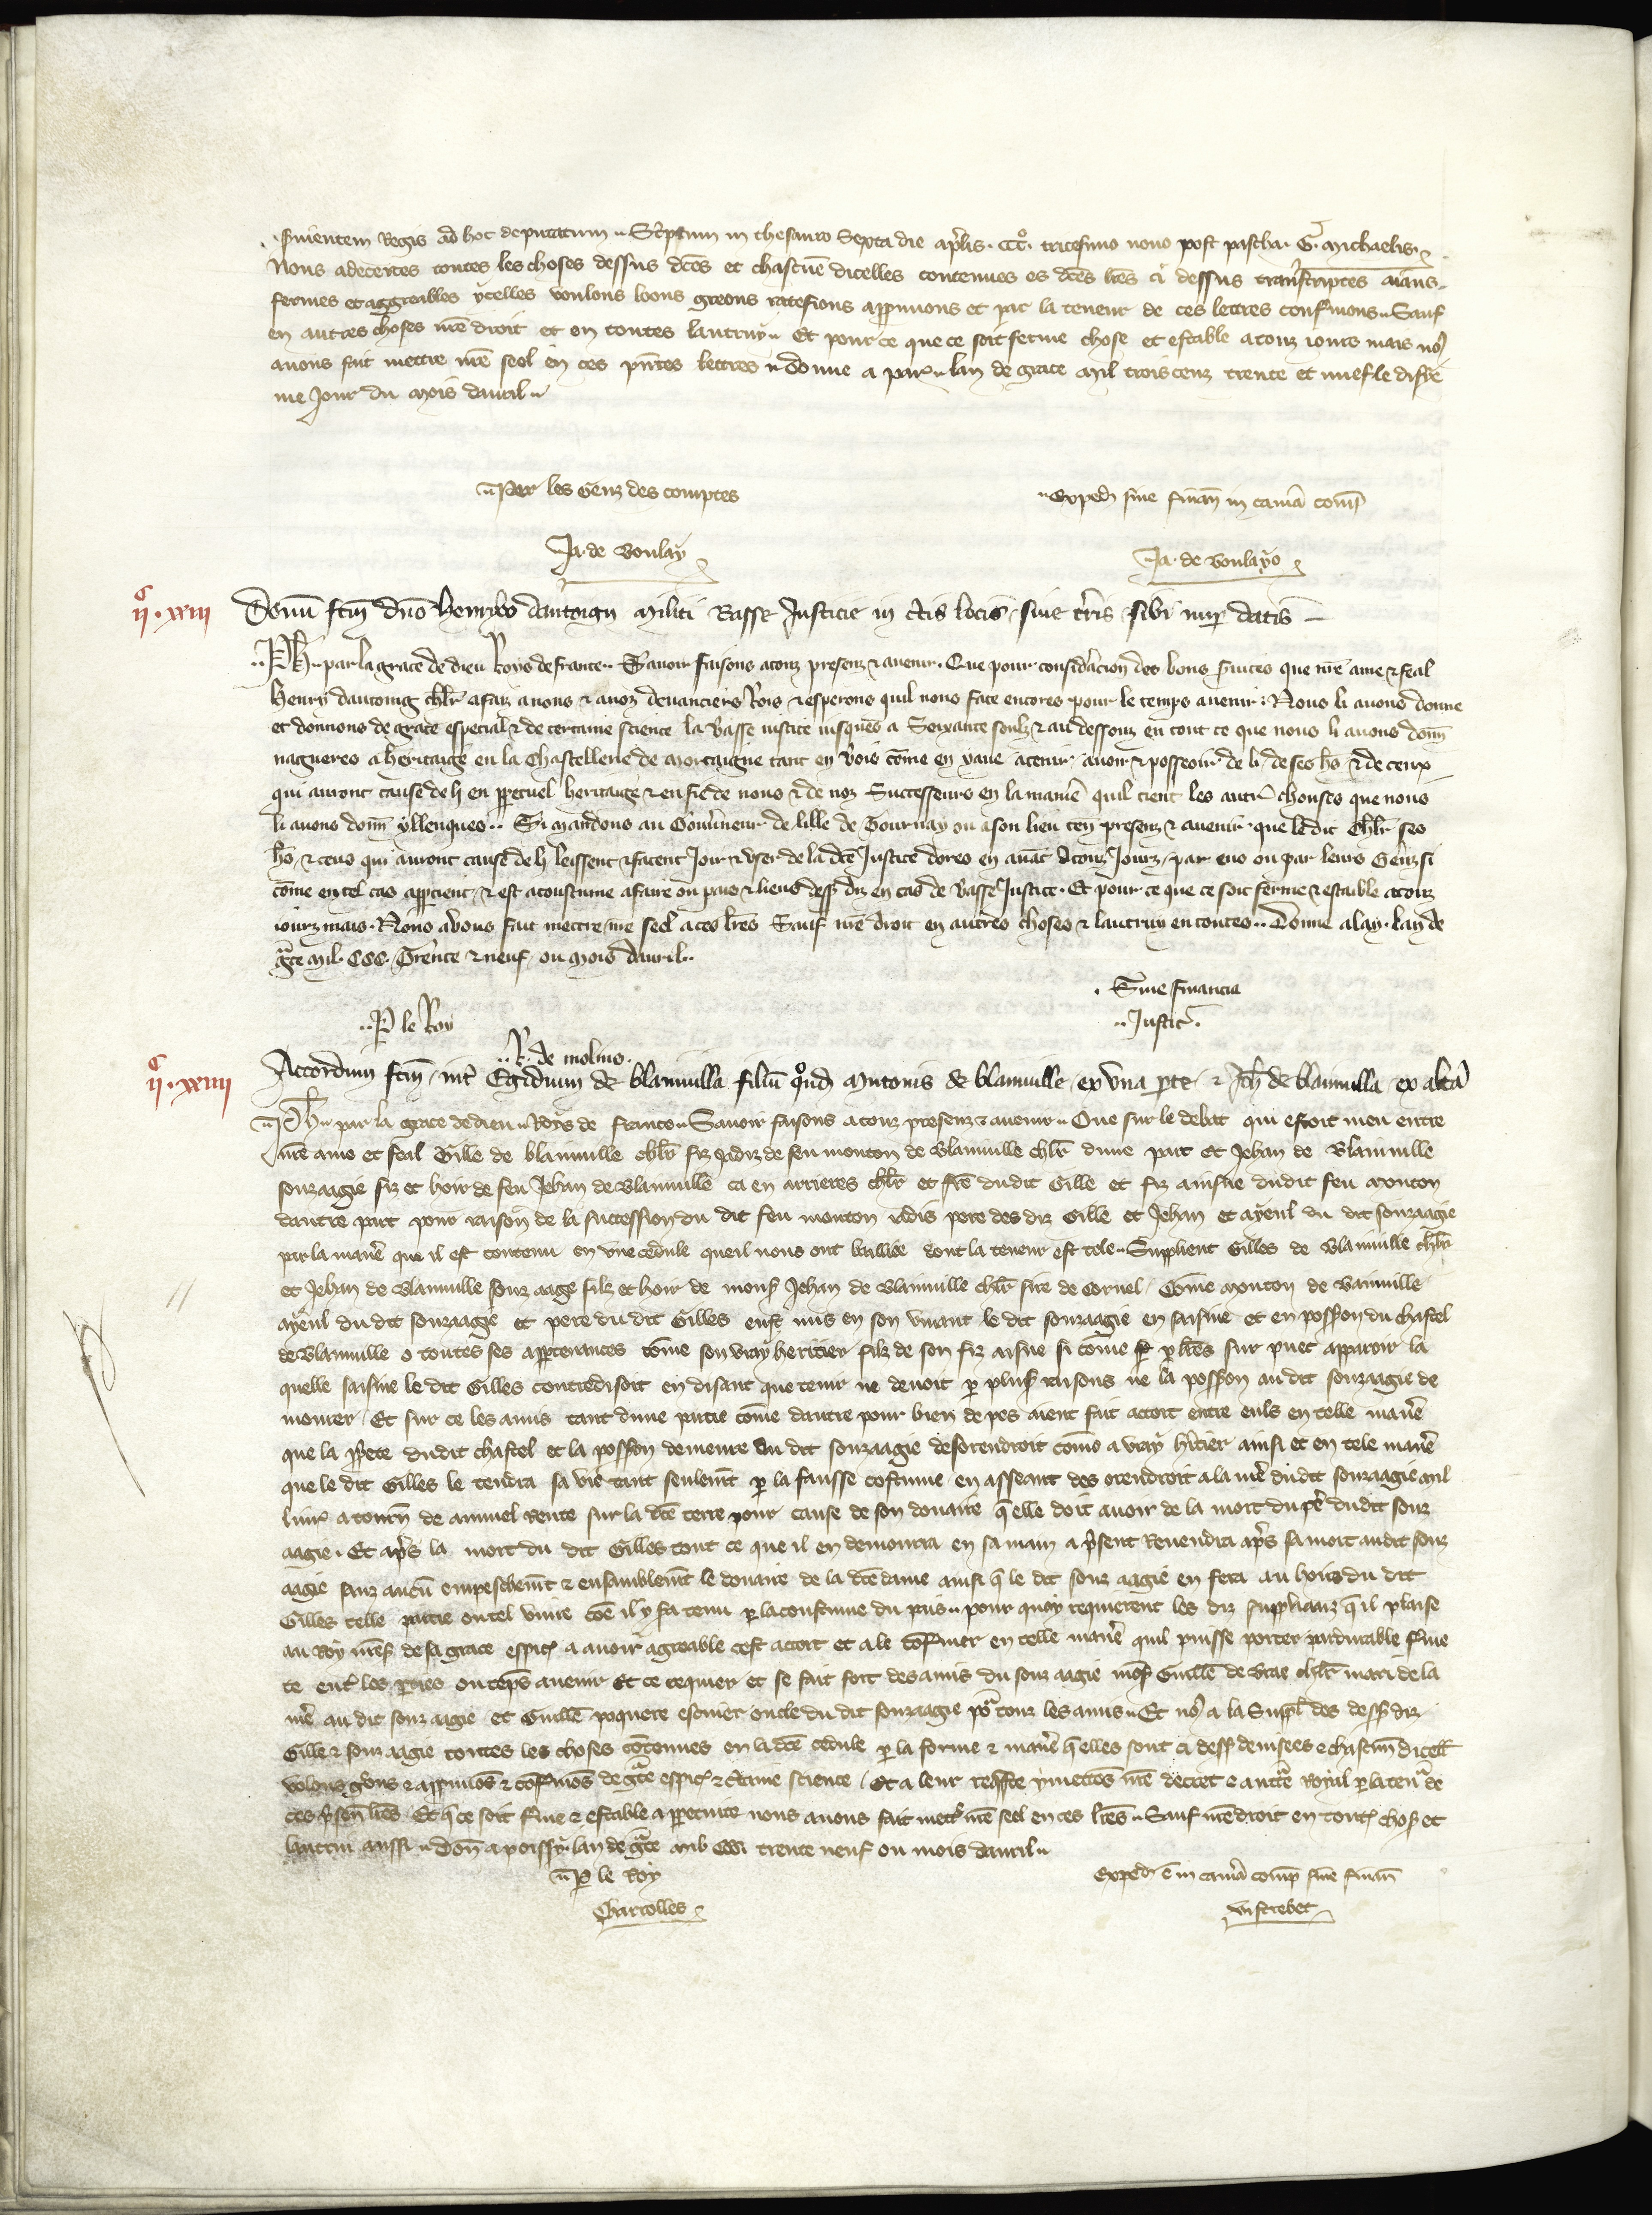 seruientem Regis ad hoc deputatum. Scriptum in thesauro Sexta die aprilis. CCCº. tricesimo nono post pascha. G. Michaelis.
Nous adecertes toutes les choses dessus dc̃es et chascune dicelles contenues es dc̃es lr̃es ci dessus transcriptes aians
fermes et aggreables ycelles voulons loons greons ratefions appruuons et par la teneur de ces lettres confirmons. Sauf
en autres choses nr̃e droit et en toutes lautruy. Et pour ce que ce soit ferme chose et estable a touz iours mais nous
auons fait mettre nr̃e seel en ces pñtes lettres. donne a Paris lan de grace Mil trois cenz trente et nuef le disie
me Jour du Mois dauril.
Par les Genz des comptes
Exped̃ sine finañ in cam̃a comp̃
Ja. de Boulay
Ja. de Boulayo
IIc. XXIII
Donũ fc̃m dño Henrico dantoign militi Basse Justicie in c̃tis locis siue t̃ris sibi nup̃ datis
Ph̃. par la grace de dieu Roys de france. Sauoir faisons a touz presenz & auenir. Que pour consid̃acion des bons s̃uices que nr̃e ame & feal
Henry dantoing chlr̃ a faiz a nous & a noz deuanciers Rois & esperons quil nous face encores pour le temps auenir. Nous li auons donne
et donnons de grace especial & de certaine science la basse iustice iusques a Soixante soulz & au dessouz en tout ce que nous li auons donn̄
nagueres a heritaige en la Chastellenie de Mortaigne tant en bois cõme en yaue a tenir auoir & posseoir de li de ses ho͞s & de ceux
qui auront cause de li en pp̃etuel heritaige & en fie de nous & de noz Successeurs en la manie͞ quil tient les autr̃ chouses que nous
li auons donn̄ yllenques. Si mandons au Gouu̾neur de lille de Tournay ou a son lieu ten̄ presenz & auenir que le dit Chlr̃ ses
ho͞s & ceus qui auront cause de li leissent & facent Joir & vser de la dc̃e Justice dores en auãt a touz Jourz par eus ou par leurs Genz si
cõme en tel cas app̃tient & est acoustume a faire ou pais & lieus dess̃ diz en cas de basse Justice. Et pour ce que ce soit ferme & estaible a touz
iourz mais. Nous auons fait mettre nr̃e seel a ces lr̃es Sauf nr̃e droit en autres choses & lautruy en toutes. Donne a lay. lan de
gr̃ce Mil. CCC. Trente & neuf ou mois dauril.
Sine financia
P̃ le Roy
Justic̃.
R. de molino.
IIc. XXIIII
Accordum fc̃m int̃ Egidium de blainuilla filiũ qõnd̃ Mutonis de blainuille ex vna p̃te & Joh̃ de blainuilla ex alt̃a
Ph̃. par la grace de dieu Roys de france. Sauoir faisons a touz presenz & auenir. Que sur le debat qui estoit meu entre
nr̃e ame et feal Gille de blainuille chlr̃ fiz Jadiz de feu mouton de Blainuille chlr̃ dune part et Jehan de Blainuille
souzaagie fiz et hoir de feu Jehan de Blainuille ca en arrieres chlr̃ et fr̃e dudit Gille et fiz ainsne dudit feu Mouton
dautre part pour raison de la succession du dit feu mouton iadis pere des diz Gille et Jehan et ayeul du dit souzaagie
par la mañe que il est contenu en vne cedule que il nous ont baillee dont la teneur est tele. Supplient Gilles de Blainuille chlr̃
et Jehan de Blainuille souz aage filz et hoir de mons̃ Jehan de Blainuille chlr̃ sire de Cornel. Cõme Mouton de bainuille
ayeul du dit souzaagie et pere du dit Gilles eust mis en son viuant le dit souzaagie en saisine et en poss̃on du chastel
de Blainuille o toutes ses app̃tenances cõme son vray heritier filz de son fiz aisne si cõme p̃ lr̃es sur puet apparoir la
quelle saisine le dit Gilles contredisoit en disant que tenir ne deuoit p̃ plus̃ raisons ne la poss̃on au dit souzaagie de
mourer. Et sur ce les amis tant dune partie cõme dautre pour bien de pes aient fait acort entre euls en telle mañe
que la pp̃ete dudit chastel et la poss̃on demeure au dit souzaagie desorendroit cõme a vray hr̃itier ainsi et en tele mañe
que le dit Gilles le tendra sa vie tant seulem̃t p̃ la fausse costume en asseant des orendroit a la me͞ dudit souzaagie mil
liur̃ a tourñ de annuel rente sur la dc̃e terre pour cause de son douaire q̃ elle doit auoir de la mort du pe͞ dudit souz
aagie. Et ap̃s la mort du dit Gilles tout ce que il en demourra en sa main a p̃sent Reuendra ap̃s sa mort audit souz
aagie sanz aucũ empeschem̃t & ensamblem̃t le douaire de la dc̃e dame ainsi q̃ le dit souz aagie en fera au hoirs du dit
Gilles telle partie ou tel viure cõe il y fa tenu p̃ la coustume du pais. pour quoy requierent les diz supplianz q̃ il plaise
au Roy nr̃es̃ de sa grace esp̃ic a auoir agreable cest acort et a le cõfirmer en telle mañe quil puisse porter pardurable ferme
te ent̃ les p̃ties ou tẽps auenir Et ce requier et se fait fort des amis du souz aagie mõs̃ Guill̃e de Brae chlr̃ mari de la
me͞ au dit souz aagie et Guill̃e poquere escuier oncle du dit souzaagie po͞ touz les amis. Et no͞ a la Suppl̃ des dess̃ diz
Gille & souz aagie toutes les choses cõtenues en la dc̃e cedule p̃ la forme & mañe q̃ elles sont ci dess̃ deuisees & chascun̄ dicell̃
volons g̃ons & appruuõs & cõfirmõs de g̃ce esp̃ic & c̃taine science. Et a leur req̃ste y mettõs nr̃e decret & auct̃e Royal p̃ la ten̄ de
ces p̃sen̄ lr̃es. Et q̃ ce soit f̃me & estable a pp̃etuite nous auons fait mett̃ nr̃e seel en ces lr̃es. Sauf nr̃e droit en tout̃ chos̃ et
lautrui aussi. Don̄ a poissy lan de g̃ce mil CCC trente neuf ou mois dauril.
P̃ le Roy
Exped̃ ẽ in cam̃a comp̃ sine finañ
Charrolles
Viscrebec